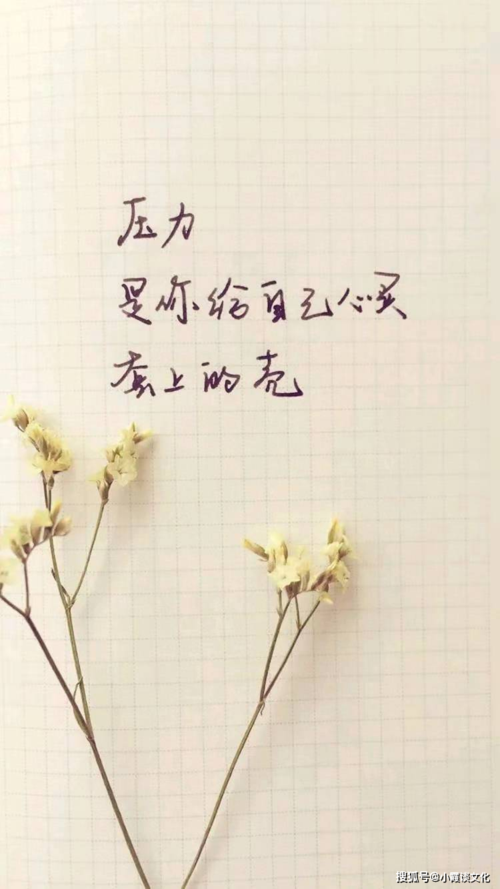 压力
是你给自己心灵
套上的壳
搜狐号@小谈文化